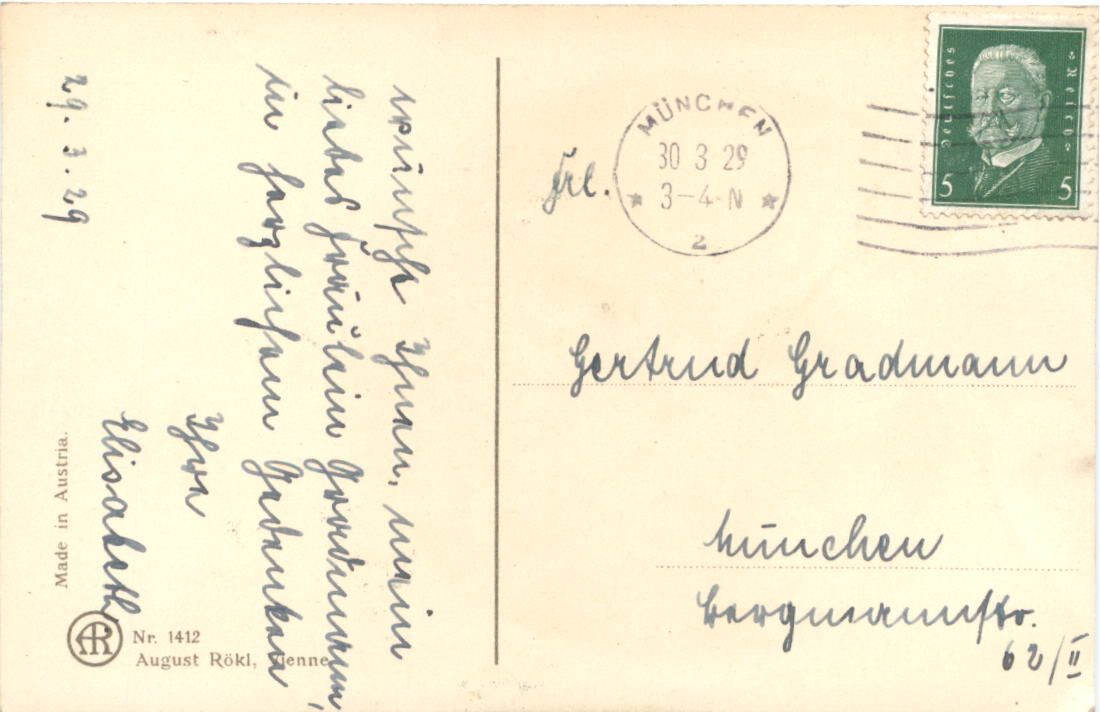 29.3.29
wünsche Ihnen, mein
liebes Fräulein Gradmann,
in herzlichem Gedenken
Ihre
Elisabeth
Made in Austria.
AR
Nr. 1412
August Rökl, Vienne
MÜNCHEN
30 3 29
3-4 N
2
Deutsches Reich
5 5
Frl.
Gertrud Gradmann
München
Bergmannstr.
62/II